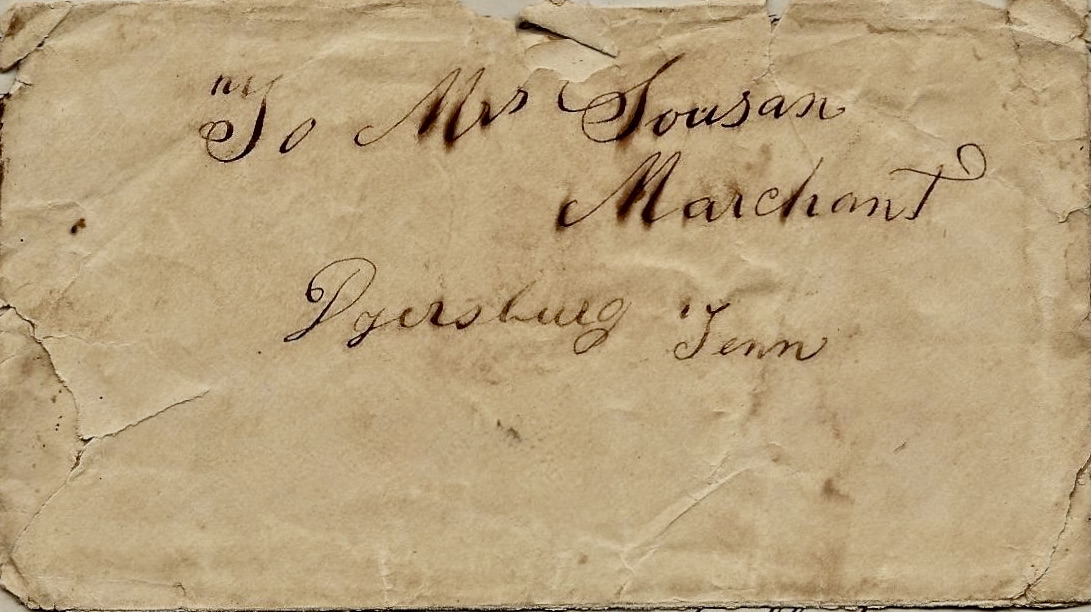 To Mrs Sousan
Marchant
Dyersburg Tenn